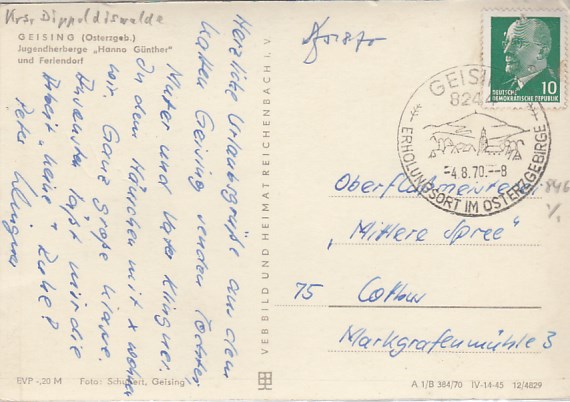 Krs. Dippoldiswalde
GEISING (Osterzgeb.)
Jugendherberge „Hanno Günther"
und Feriendorf
Herzliche Urlaubsgrüße aus dem
kalten Geising senden Tochter,
Mutter und Vater Klingner.
In dem Häuschen mit x wohnen
wir. Ganz große Klasse.
Ansonsten läßt mir die
Arbeit keine Ruhe?
Peter Klingner
EVP -,20 M Foto: Schubert, Geising
VEB BILD UND HEIMAT REICHENBACH I. V.
10
DEUTSCHE
DEMOKRATISCHE REPUBLIK
GEISING
8244
-4.8.70.--8
ERHOLUNGSORT IM OSTERZGEBIRGE
Oberflußmeisterei
„Mittlere Spree"
75 Cottbus
Markgrafenmühle 3
A 1/B 384/70 IV-14-45 12/4829